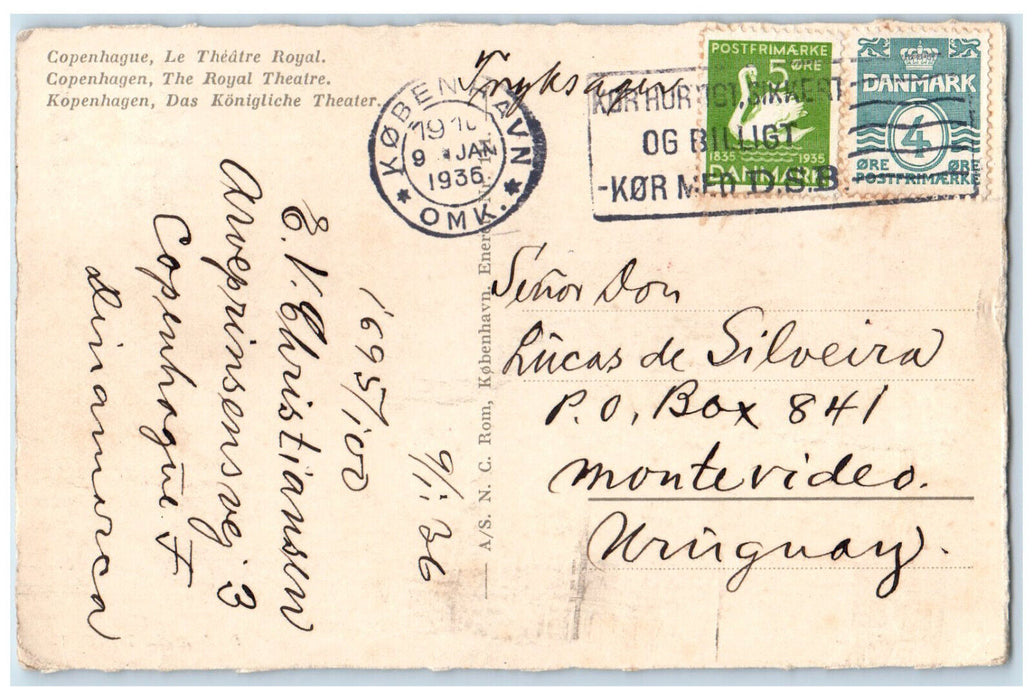 Copenhague, Le Théâtre Royal.
Copenhagen, The Royal Theatre.
Kopenhagen, Das Königliche Theater.
Tryksager
KØBENHAVN
9 JAN
1936
* OMK. *
KØR HURTIGT, SIKKERT
OG BILLIGT
-KØR MED D.S.B.
POSTFRIMÆRKE
5 ØRE
1835 1935
DANMARK
DANMARK
4
ØRE ØRE
POSTFRIMÆRKE
A/S. N. C. Rom, København, Eneret
Señor Don
Lucas de Silveira
P.O. Box 841
Montevideo.
Uruguay.
9/1.36
1695/100
E. V. Christiansen
Arveprinsensvej 3
Copenhague F
Dinamarca